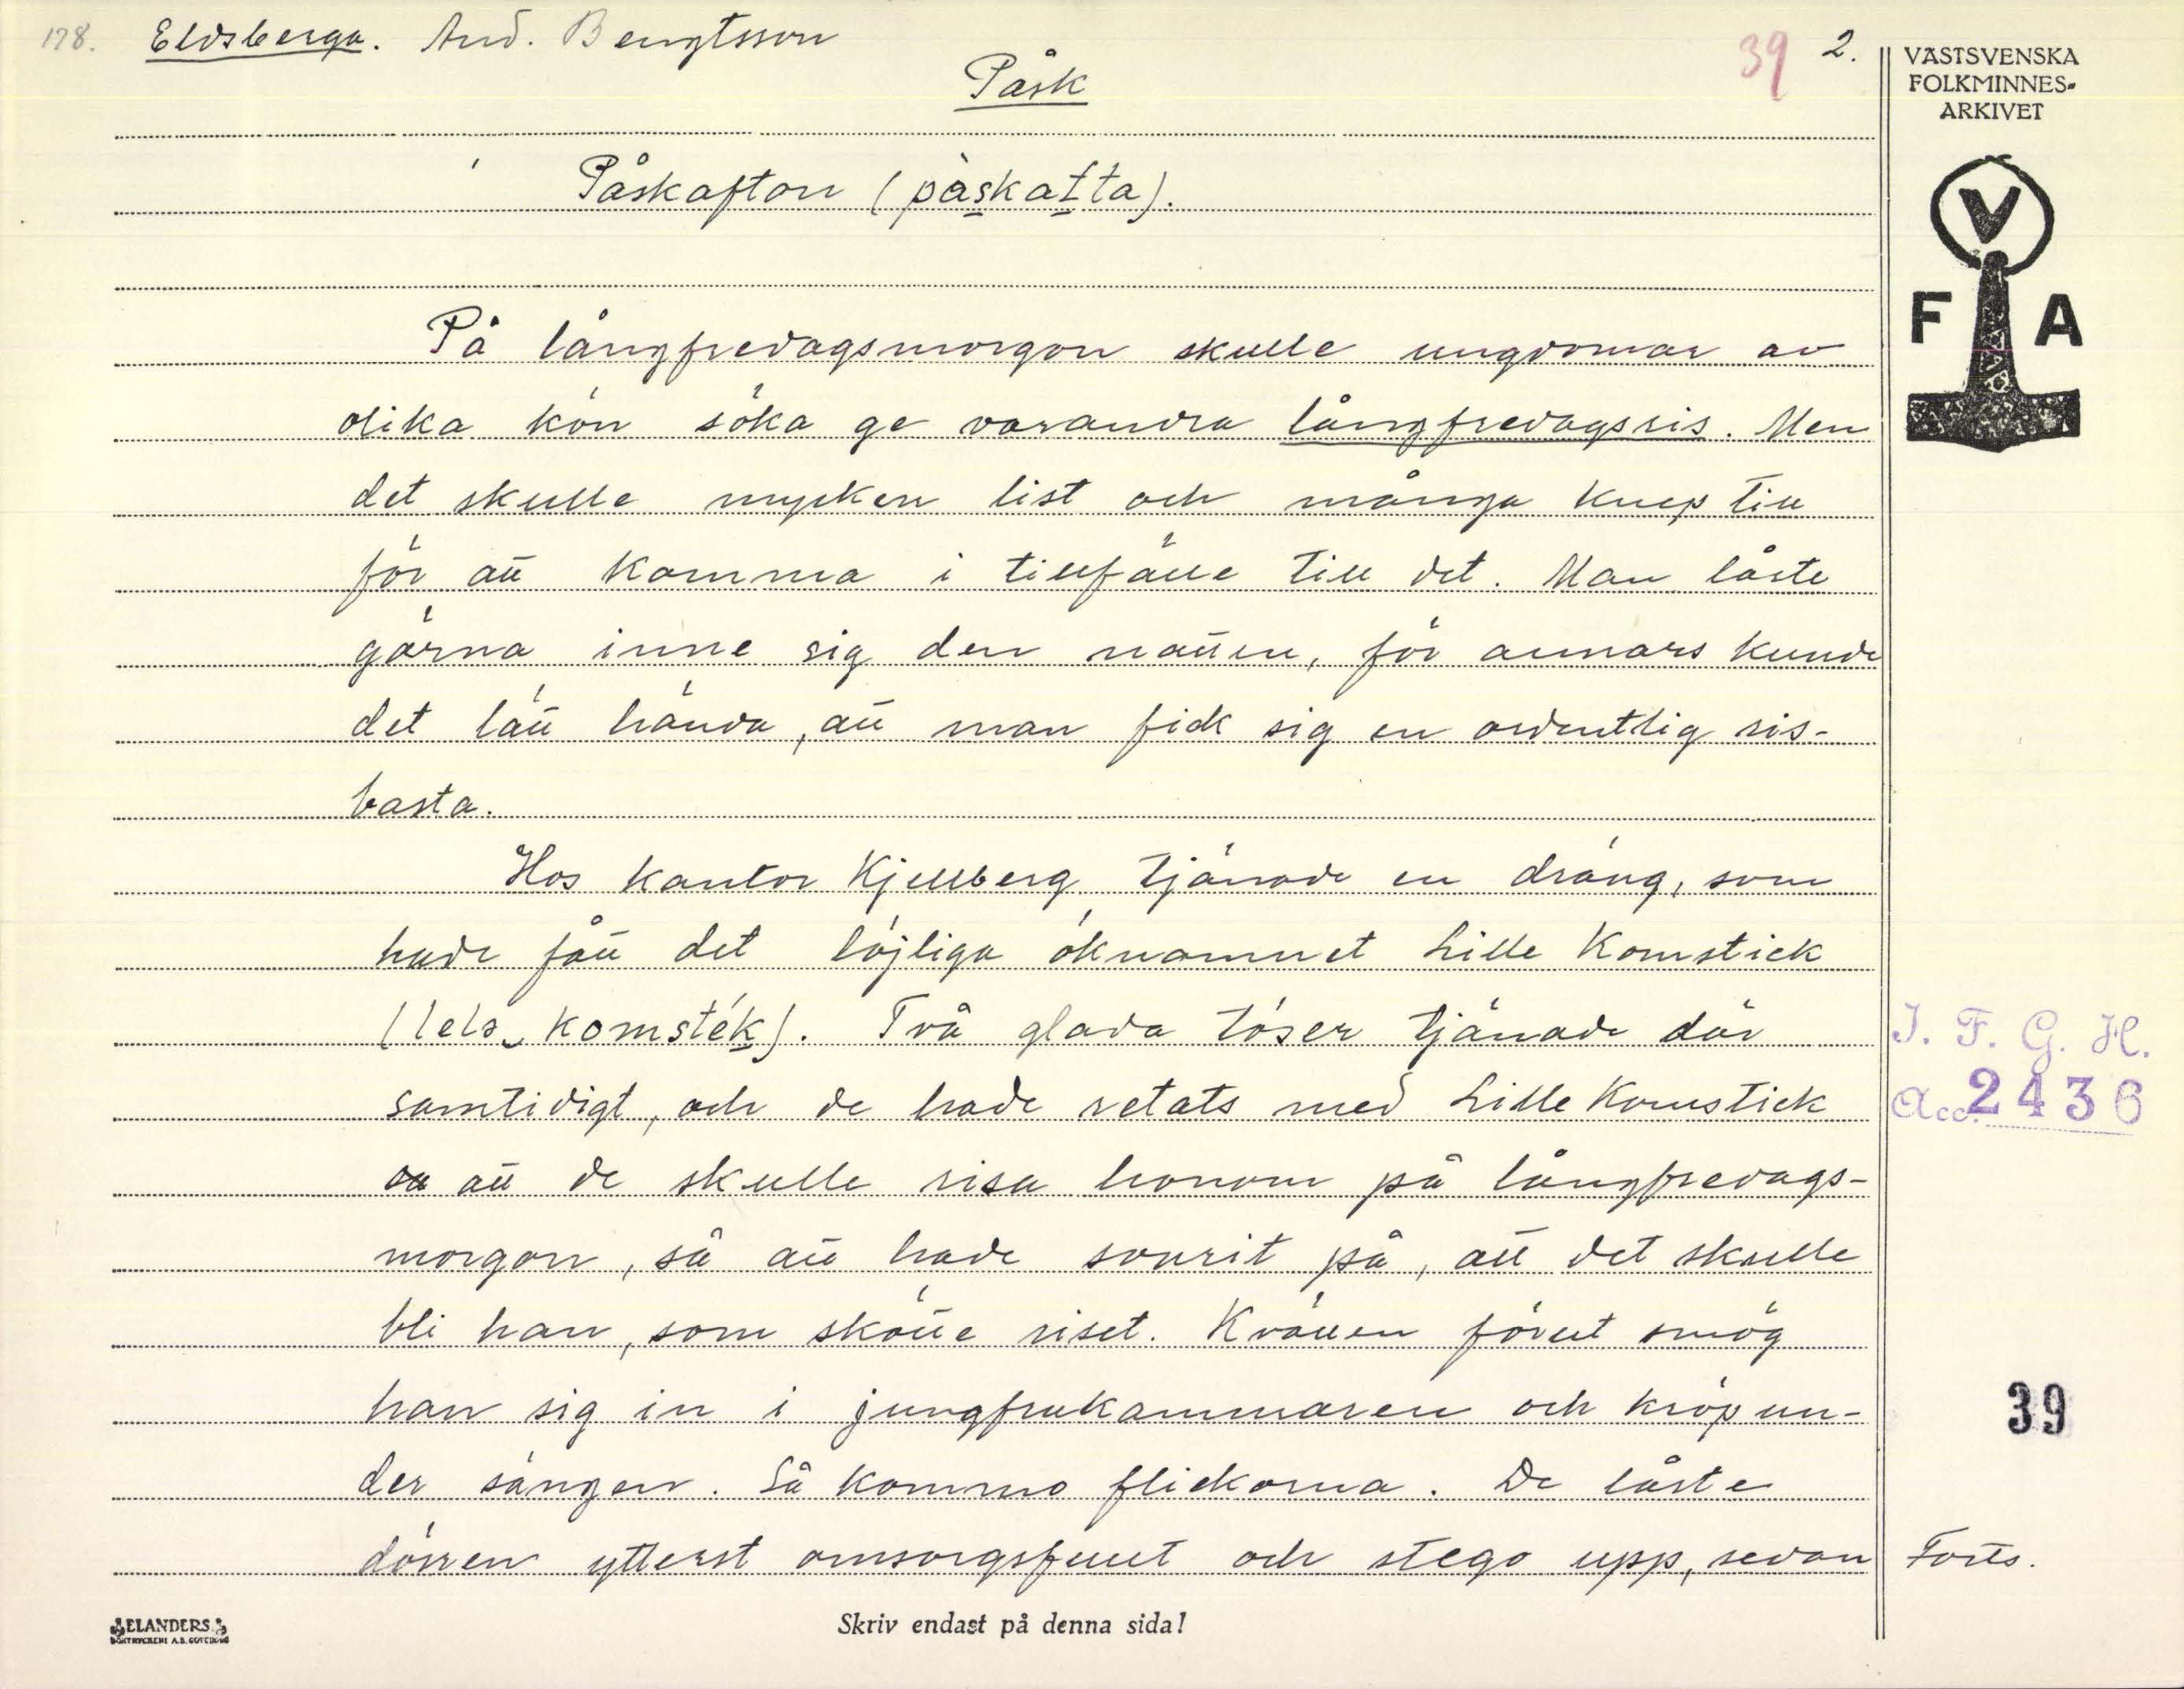 178. Eldsberga. And. Bengtsson
39 2.
Påsk
Påskafton (påskatta).
På långfredagsmorgon skulle ungdomar av
olika kön söka ge varandra långfredagsris. Men
det skulle mycken list och många knep till
för att komma i tillfälle till det. Man låste
gärna inne sig den natten, för annars kunde
det lätt hända, att man fick sig en ordentlig ris-
basta.
Hos kantor Kjellberg tjänade en dräng, som
hade fått det löjliga öknamnet Lille Komstick
(lelə komsték). Två glada töser tjänade där
samtidigt, och de hade retats med Lille Komstick
att de skulle risa honom på långfredags-
morgon, så att hade svurit på, att det skulle
bli han, som skötte riset. Kvällen förut smög
han sig in i jungfrukammaren och kröp un-
der sängen. Så kommo flickorna. De låste
dörren ytterst omsorgsfullt och stego upp, sedan
Forts.
VÄSTSVENSKA
FOLKMINNES-
ARKIVET
V
F A
I. F. G. H.
Acc. 2436
39
ELANDERS
BOKTRYCKERI A.B. GÖTEBORG
Skriv endast på denna sida!